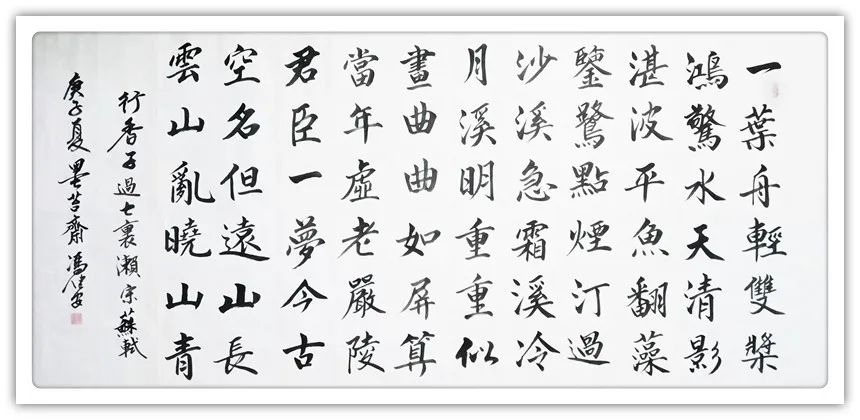 一葉舟輕雙槳
鴻驚水天清影
湛波平魚翻藻
鑒鷺點煙汀過
沙溪急霜溪冷
月溪明重重似
畫曲曲如屏算
當年虛老嚴陵
君臣一夢今古
空名但遠山長
雲山亂曉山青
行香子過七裏瀨宋蘇軾
庚子夏墨齋馮